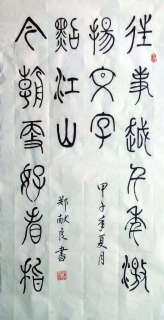 往事越千年激
揚文字
今朝更好看指
點江山
甲年夏月
郑献良書